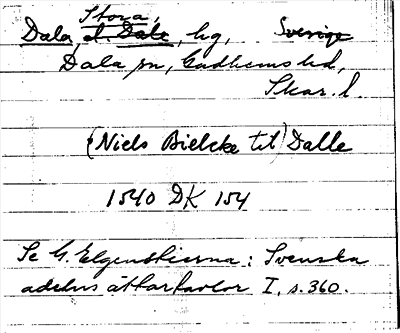 Stora
Dala, el. Dale, hg, Sverige
Dala sn, Gudhems hd,
Skar. l.
(Niels Bielcke til) Dalle
1540 DK 154
Se G. Elgenstierna: Svenska
adelns ättartavlor I, s. 360.